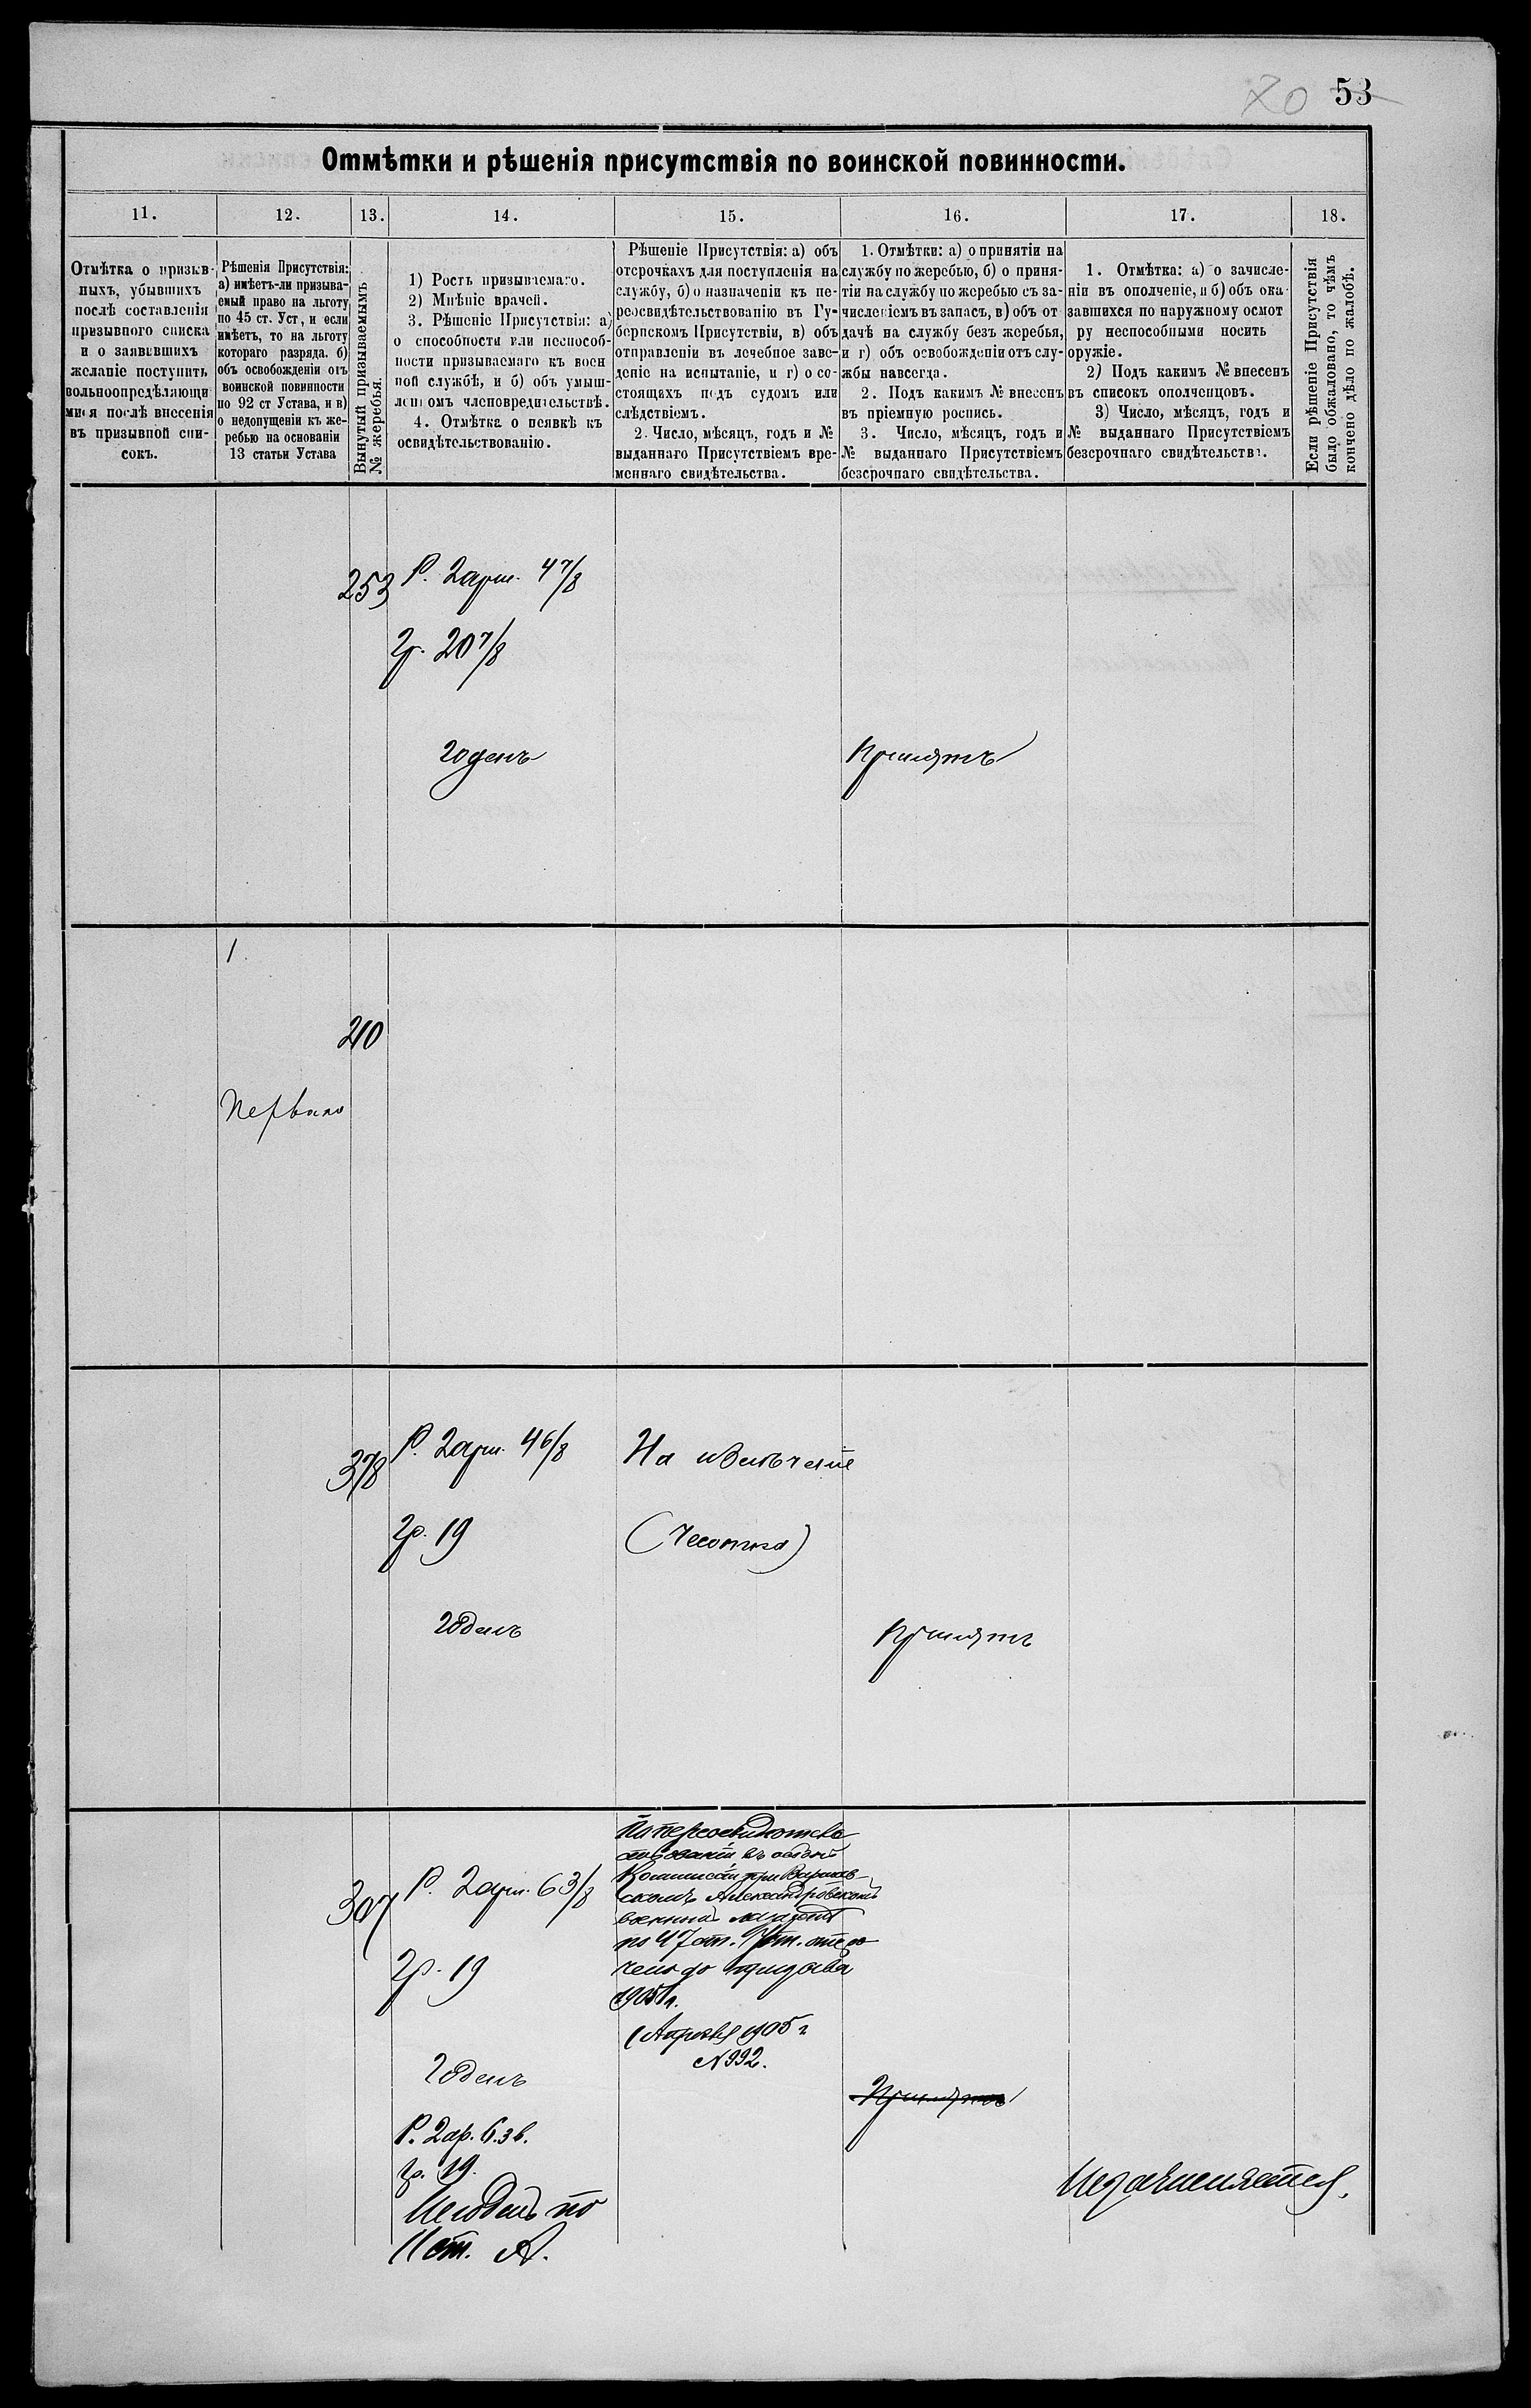 70 53
Отмѣтки и рѣшенія присутствія по воинской повинности.
11. 12. 13. 14. 15. 16. 17. 18.
Отмѣтка о призыв-
ныхъ, убывшихъ
послѣ составленія
призывного списка
и о заявившихъ
желаніе поступить
вольноопредѣляющи
мися послѣ внесенія
въ призывной спи-
сокъ.
Рѣшенія Присутствія:
а) имѣетъ-ли призыва-
емый право на льготу
по 45 ст. Уст, и если
имѣетъ, то на льготу
котораго разряда. б)
объ освобожденіи отъ
воинской повинности
по 92 ст Устава, и в)
о недопущеніи къ же-
ребью на основаніи
13 статьи Устава
Вынутый призываемымъ
№ жеребья.
1) Ростъ призываемаго.
2) Мнѣніе врачей.
3. Рѣшеніе Присутствія: а)
о способности или неспособ-
ности призываемаго къ воен
ной службѣ, и б) объ умыш-
ленномъ членовредительствѣ.
4. Отмѣтка о неявкѣ къ
освидѣтельствованію.
Рѣшеніе Присутствія: а) объ
отсрочкахъ для поступленія на
службу, б) о назначеніи къ пе-
реосвидѣтельствованію въ Гу-
бернскомъ Присутствіи, в) объ
отправленіи въ лечебное заве-
деніе на испытаніе, и г) о со-
стоящихъ подъ судомъ или
слѣдствіемъ.
2. Число, мѣсяцъ, годъ и №
выданнаго Присутствіемъ вре-
меннаго свидѣтельства.
1. Отмѣтки: а) о принятіи на
службу по жеребью, б) о приня-
тіи на службу по жеребью съ за-
численіемъ въ запасъ, в) объ от
дачѣ на службу безъ жеребья,
и г) объ освобожденіи отъ слу-
жбы навсегда.
2. Подъ какимъ № внесенъ
въ пріемную роспись.
3. Число, мѣсяцъ, годъ и
№ выданнаго Присутствіемъ
безсрочнаго свидѣтельства.
1. Отмѣтка: а) о зачисле-
ніи въ ополченіе, и б) объ ока
завшихся по наружному осмот
ру неспособными носить
оружіе.
2) Подъ какимъ № внесенъ
въ списокъ ополченцовъ.
3) Число, мѣсяцъ, годъ и
№ выданнаго Присутствіемъ
безсрочнаго свидѣтельства.
Если рѣшеніе Присутствія
было обжаловано, то чѣмъ
кончено дѣло по жалобѣ.
253 Р. 2арш. 4 7/8
Гр. 20 7/8
годенъ Принятъ
1.
210
Перваго
378 Р. 2арш. 4 6/8 На излѣченіе
Гр. 19 (Чесотка)
годенъ Принятъ
307 Р. 2арш. 6 3/8
Гр. 19
Годенъ
Р. 2ар. 6.3в.
гр. 19.
Негоденъ по
11 ст. А.
По переосвидѣтель
ствованіи въ особой
Комиссіи при Варшав-
скомъ Александровскомъ
военномъ
по 47 ст. Уст. отсро
ченъ до призыва
1905 г.
1 Апрѣля 1905 г
№ 992.
Принятъ
Незачисляется.